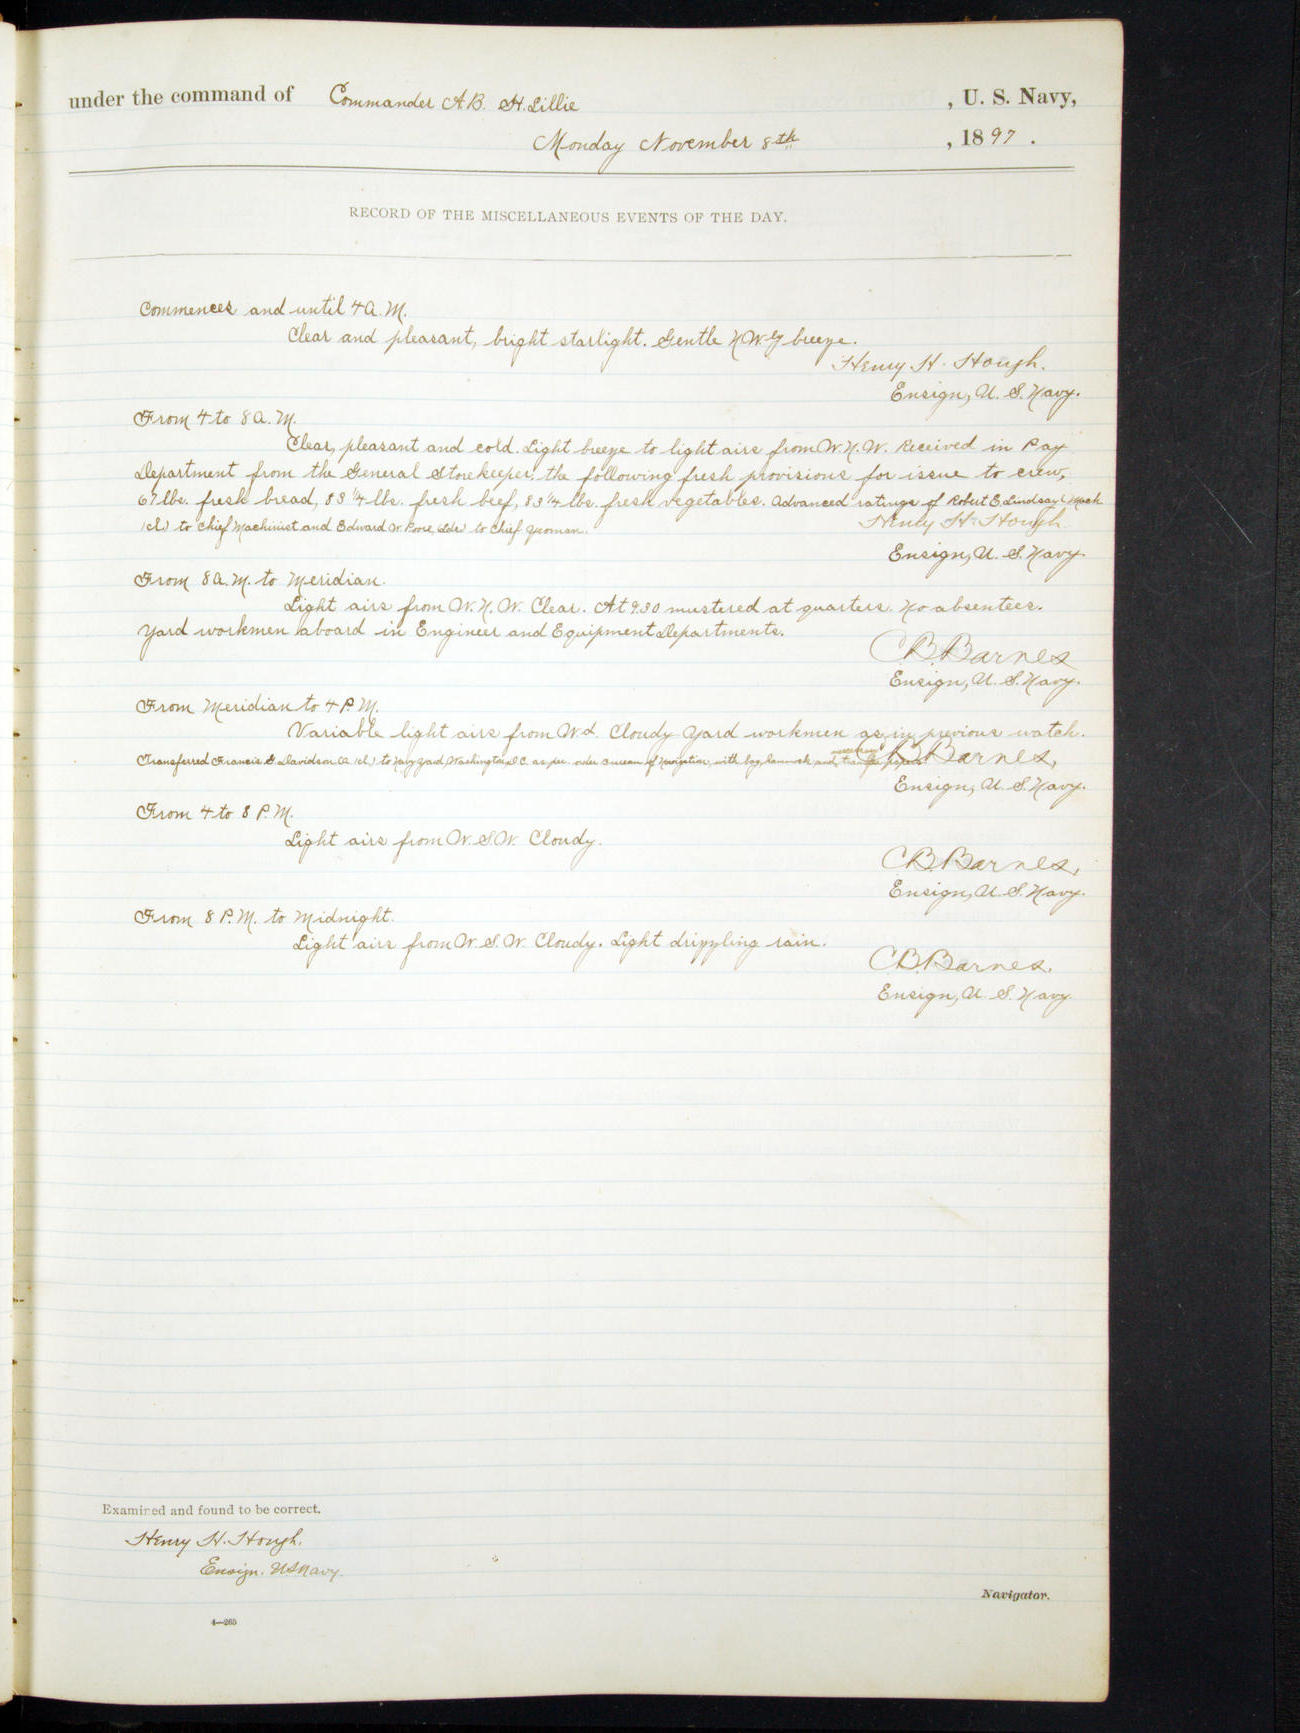 under the command of Commander A.B. H. Lillie , U. S. Navy,
Monday November 8th , 1897 .
RECORD OF THE MISCELLANEOUS EVENTS OF THE DAY.
Commences and until 4 A.M.
Clear and pleasant, bright starlight. Gentle N.W.ly breeze.
Henry H. Hough.
Ensign, U. S. Navy.
From 4 to 8 A.M.
Clear, pleasant and cold. Light breeze to light airs from W.N.W. Received in Pay
Department from the General Storekeeper, the following fresh provisions for issue to crew,
67 lbs. fresh bread, 83 1/4 lbs. fresh beef, 83 1/4 lbs. fresh vegetables. Advanced ratings of Robert E. Lindsay (Mach
1cl.) to Chief Machinist and Edward W. to Chief Yeoman.
Henry H. Hough
Ensign, U. S. Navy.
From 8 A.M. to Meridian.
Light airs from W.N.W. Clear. At 9.30 mustered at quarters. No absentees.
Yard workmen aboard in Engineer and Equipment Departments.
C.B. Barnes
Ensign, U. S. Navy.
From Meridian to 4 P.M.
Variable light airs from Wd. Cloudy Yard workmen as in previous watch.
Transferred Francis G. Davidson to Navy Yard, Washington, D.C. as per order Bureau of Navigation, with bag, hammock and
C.B. Barnes,
Ensign, U. S. Navy.
From 4 to 8 P.M.
Light airs from W.S.W. Cloudy.
C.B. Barnes,
Ensign, U. S. Navy.
From 8 P.M. to Midnight.
Light airs from W.S.W. Cloudy. Light drizzling rain.
C.B. Barnes.
Ensign, U. S. Navy
Examined and found to be correct.
Henry H. Hough.
Ensign. U.S. Navy.
Navigator.
4—265